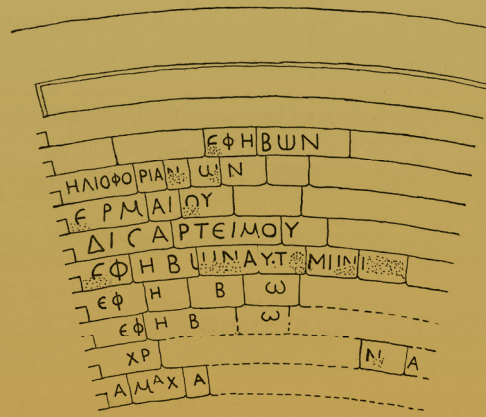 ΕΦΗΒΩΝ
ΗΛΙΟΦΟΡΙΑΝΩΝ
ΕΡΜΑΙΟΥ
ΔΙϹΑΡΤΕΙΜΟΥ
ΕΦΗΒ
ΕΦΗΒω
ΕΦΗΒω
ΧΡ Ν Α
ΑΜΑΧΑ